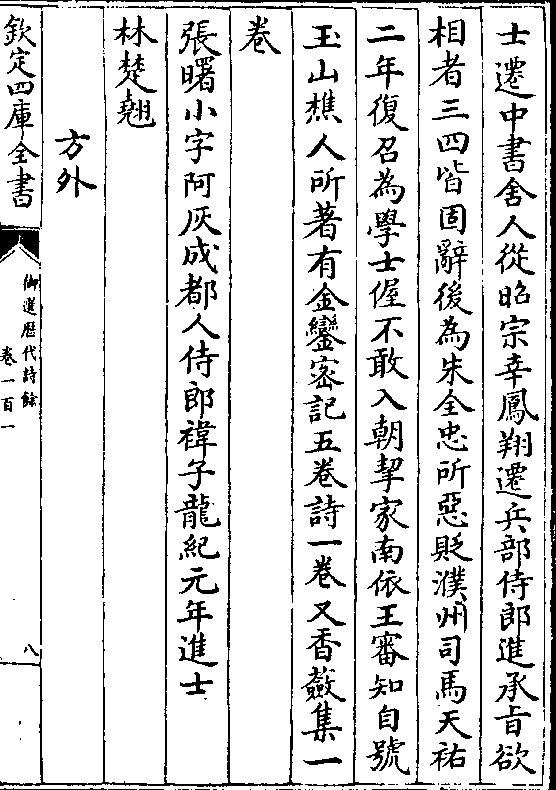 士遷中書舍人從昭宗幸鳳翔遷兵部侍郎進承旨欲
相者三四皆固辭後為朱全忠所惡貶濮州司馬天祐
二年復召為學士偓不敢入朝挈家南依王審知自號
玉山樵人所著有金鑾宻記五卷詩一卷又香奩集一
卷
張曙小字阿灰成都人侍郎禕子龍紀元年進士
林楚翹
方外
欽定四庫全書
御選歴代詩餘
卷一百一
八